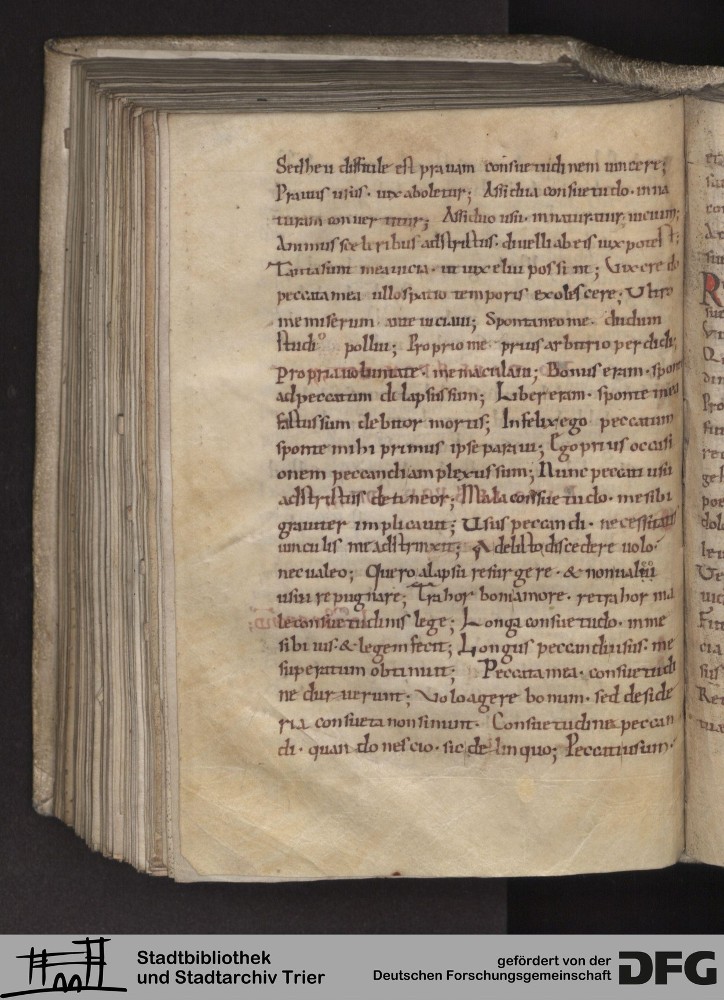 Sed heu difficile est prauam consuetudinem uincere;
Prauus usus · uix aboletur; Assidua consuetudo · in na
turam conuertitur; Assiduo usu · in naturam uicium;
Animus sceleribus adstrictus · diuelli ab eis uix potest;
Tanta sunt mea uicia · ut uix elui possint; Vix credo
peccata mea ullo spatio temporis exolescere; Vltro
me miserum · uiciaui; Spontaneo me · dudum
studio pollui; Proprio me prius arbitrio perdidi;
Propria uoluntate · me maculaui; Bonus eram · spon
ad peccatum delapsus sum; Liber eram · sponte mea
factus sum debitor mortis; Infelix ego peccatum
sponte mihi primus ipse paraui; Ego prius occasi
onem peccandi amplexus sum; Nunc peccati usu
adstrictus detineor; Mala consuetudo · me sibi
grauiter implicauit; Vsus peccandi · necessitatis
uinculis me adstrinxit; A delicto discedere uolo ·
nec ualeo; Quero a lapsu resurgere · & non ualeo
usui repugnare; Trahor boni amore · retrahor ma
le consuetudinis lege; Longa consuetudo · in me
sibi uis & legem fecit; Longus peccandi usus · me
superatum obtinuit; Peccata mea · consuetudi
ne duruerunt; Volo agere bonum · sed deside
ria consueta non sinunt · Consuetudine peccan
di · quando nescio · sic delinquo; Peccati usum ·
Stadtbibliothek
und Stadtarchiv Trier
gefördert von der
Deutschen Forschungsgemeinschaft
DFG